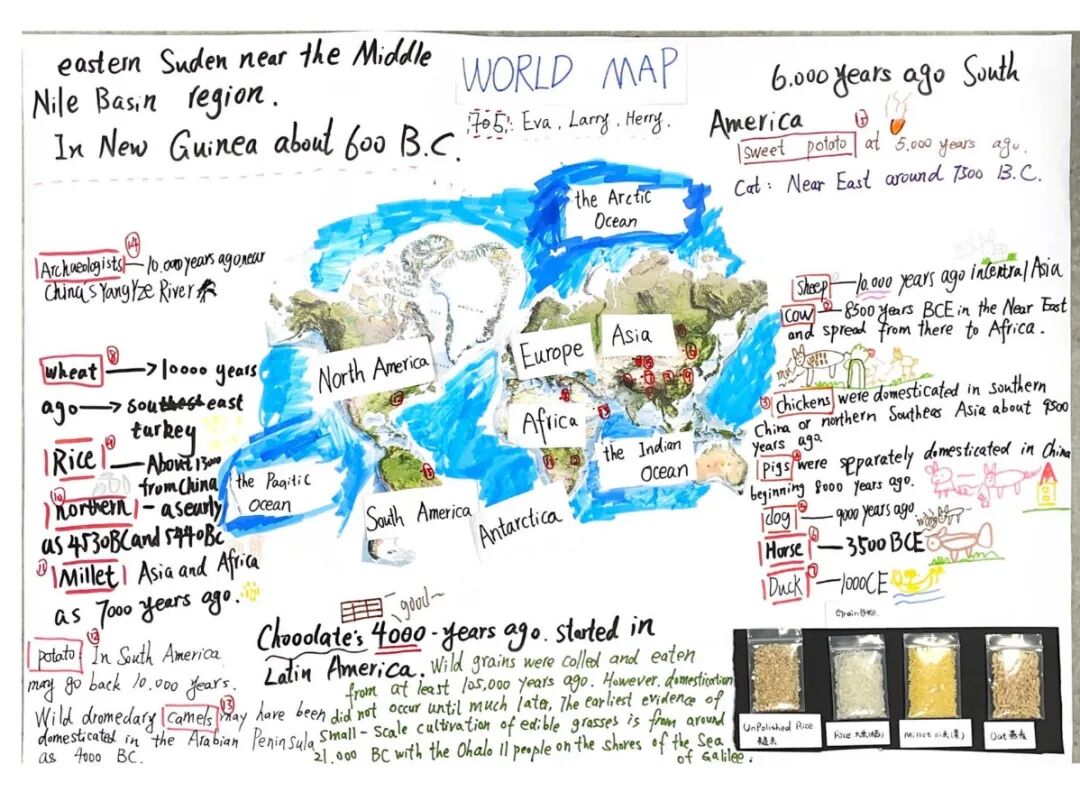 eastern Suden near the Middle
Nile Basin region.
In New Guinea about 600 B.C.
WORLD MAP
705: Eva, Larry, Herry.
6.000 years ago South
America
15
sweet potato at 5.000 years ago.
Cat: Near East around 7500 B.C.
the Arctic
Ocean
14
Archaeologists — 10.000 years ago, near
China's YangYze River
8
wheat → 10000 years
ago → southeast east
turkey
9
Rice — About 13000
from China
10
northern — as early
as 4530BC and 5440BC
11
Millet Asia and Africa
as 7000 years ago.
12
potato In South America
may go back 10.000 years.
13
Wild dromedary camels may have been
domesticated in the Arabian Peninsula
as 4000 BC.
North America
Europe
Asia
Africa
the Indian
Ocean
the Pagitic
Ocean
South America
Antarctica
sheep — 10.000 years ago in Central Asia
cow — 8500 years BCE in the Near East
and spread from there to Africa.
3
chickens were domesticated in southern
China or northern Southeas Asia about 9500
years ago.
pigs were separately domesticated in China
beginning 8000 years ago.
5
dog — 9000 years ago
6
Horse — 3500 BCE
7
Duck — 1000CE
good~
Chooolate's 4000-years ago. started in
Latin America. Wild grains were colled and eaten
from at least 105,000 years ago. However, domestication
did not occur until much later. The earliest evidence of
small-scale cultivation of edible grasses is from around
21.000 BC with the Ohalo II people on the shores of the Sea
of Galilee.
UnPolished Rice
糙米
Rice 大米(稻)
Millet 小米(粟)
Oat 燕麦